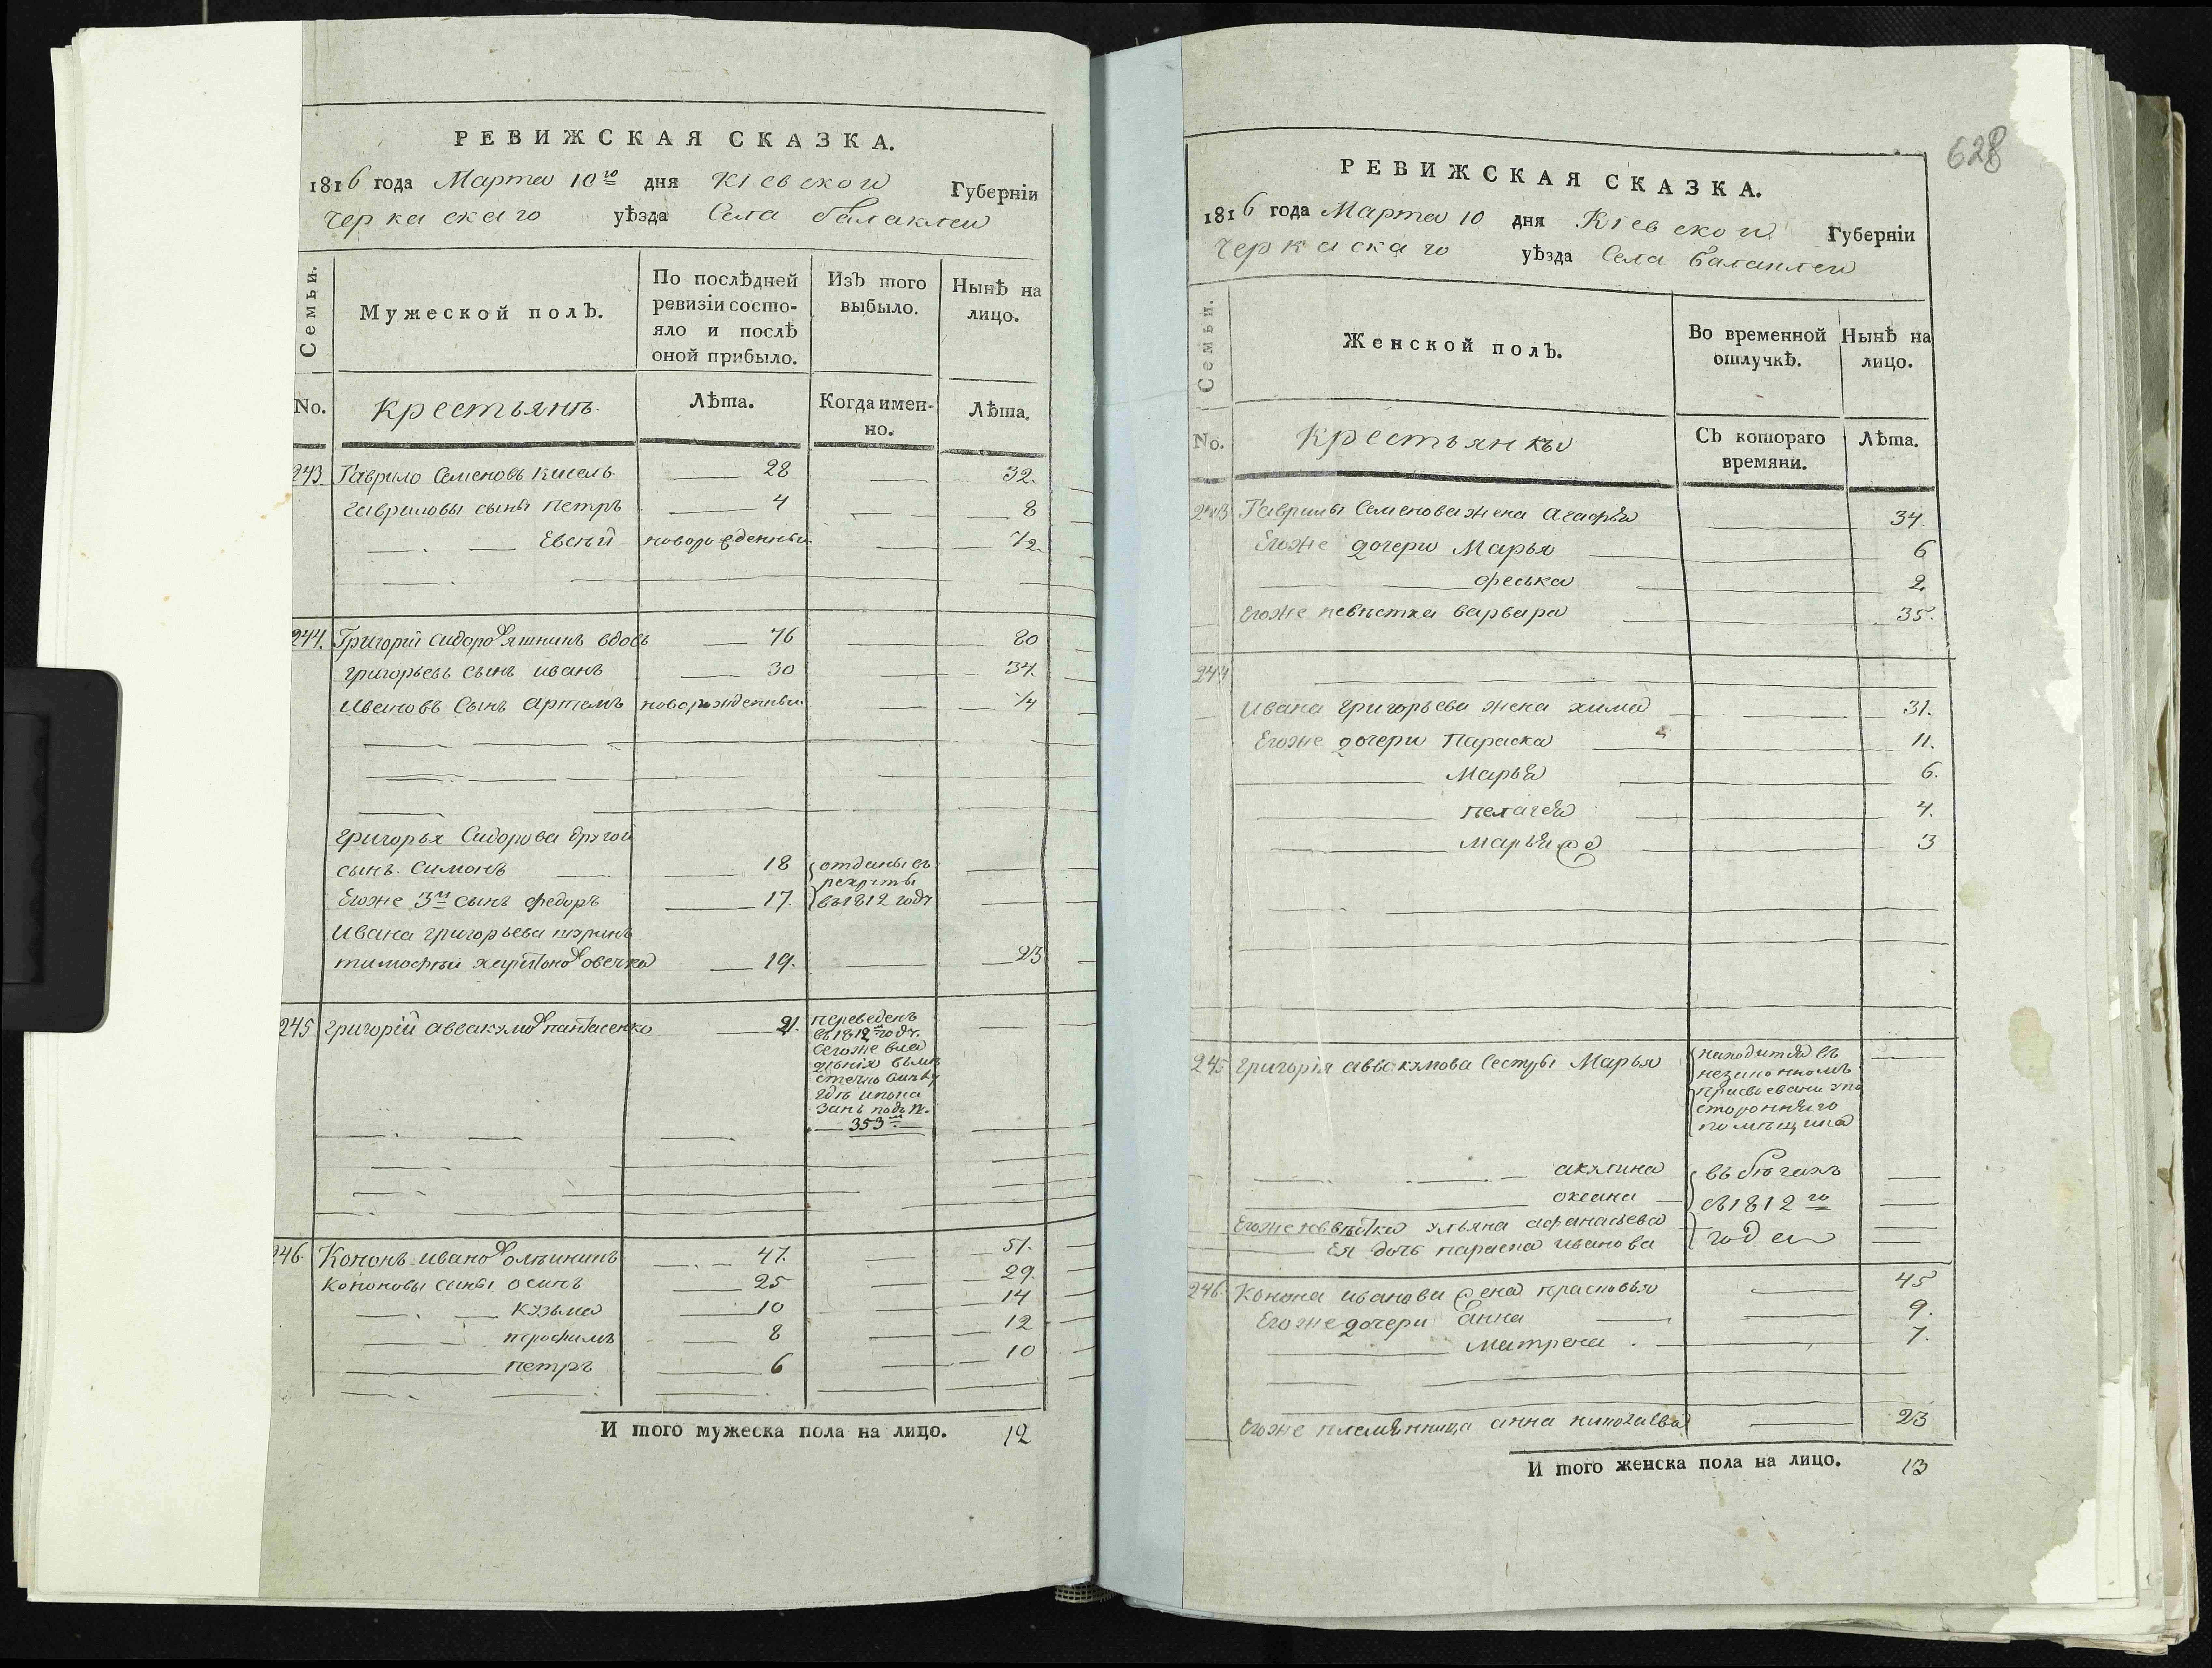 РЕВИЖСКАЯ СКАЗКА.
1816 года Марта 10го дня Кіевской Губерніи
Черкаскаго уѣзда Села балаклеи
Семьи.
Мужеской полъ.
По послѣдней ревизіи состояло и послѣ оной прибыло.
Изъ того выбыло.
Нынѣ на лицо.
No. Крестьянъ Лѣта. Когда именно. Лѣта.
243. Гаврило Семеновъ кисель 28 — 32.
Гавриловы сыны петръ 4 — 8
Евсѣй новорожденный — 1/2
244. Григорій сидоровъ вдовъ 76 — 80
григорьевъ сынъ иванъ 30 — 34.
Ивановъ Сынъ артемъ новорожденный — 1/4
григорья Сидорова другой
сынъ Симонъ 18 отданы въ
рекруты
Егоже 3й сынъ федоръ 17. въ 1812 году
Ивана григорьева шуринъ
тимофѣй харитоновъ овечка 19. — 23
245 григорій аввакумовъ панасенко 21. переведенъ
въ 1812м году.
Сегоже вла
дѣнія въ мѣ
стечко
гдѣ и пока
занъ подъ №.
353м
246. Кононъ ивановъ 47. — 51.
Кононовы сыны осипъ 25 — 29.
кузьма 10 — 14
трофимъ 8 — 12
петръ 6 — 10
И того мужеска пола на лицо. 12
628
РЕВИЖСКАЯ СКАЗКА.
1816 года Марта 10 дня Кіевской Губерніи
Черкаскаго уѣзда Села балаклеи
Семьи.
Женской полъ.
Во временной отлучкѣ.
Нынѣ на лицо.
No. Крестьянки Съ котораго времяни. Лѣта.
243 Гаврилы Семенова жена Агафья 34.
Егоже дочери Марья 6
феська 2
Егоже невѣстка варвара 35.
244
Ивана григорьева жена хима 31.
Егоже дочери Параска 11.
Марья 6.
пелагея 4.
Марья 3
245 григорія аввакумова Сестры Марья находится въ
незаконномъ
присвоевани у по
сторонняго
помѣщика
акулина въ бѣгахъ
оксана съ 1812 го
Егоже невѣстка ульяна афанасьева года
Ея дочь параска иванова
246. Конона иванова жена прасковья 45
Егоже дочери Анна 9.
матрена 7.
Егоже племянница анна николаева 23
И того женска пола на лицо. 13